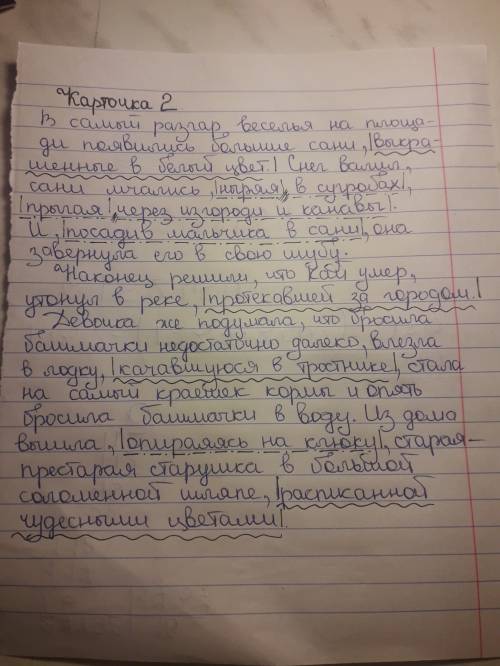 Карточка 2
В самый разгар веселья на площа-
ди появились большие сани, |выкра-
шенные в белый цвет.| Снег валил,
сани мчались, |ныряя, в сугробах|,
|прыгая, через изгороди и канавы|.
И, |посадив мальчика в сани|, она
завернула его в свою шубу.
Наконец решили, что Кай умер,
утонул в реке, |протекавшей за городом.|
Девочка же подумала, что бросила
башмачки недостаточно далеко, влезла
в лодку, |качавшуюся в тростнике|, стала
на самый краешек кормы и опять
бросила башмачки в воду. Из дома
вышла, |опираясь на клюку|, старая-
престарая старушка в большой
соломенной шляпе, |расписанной
чудесными цветами|.